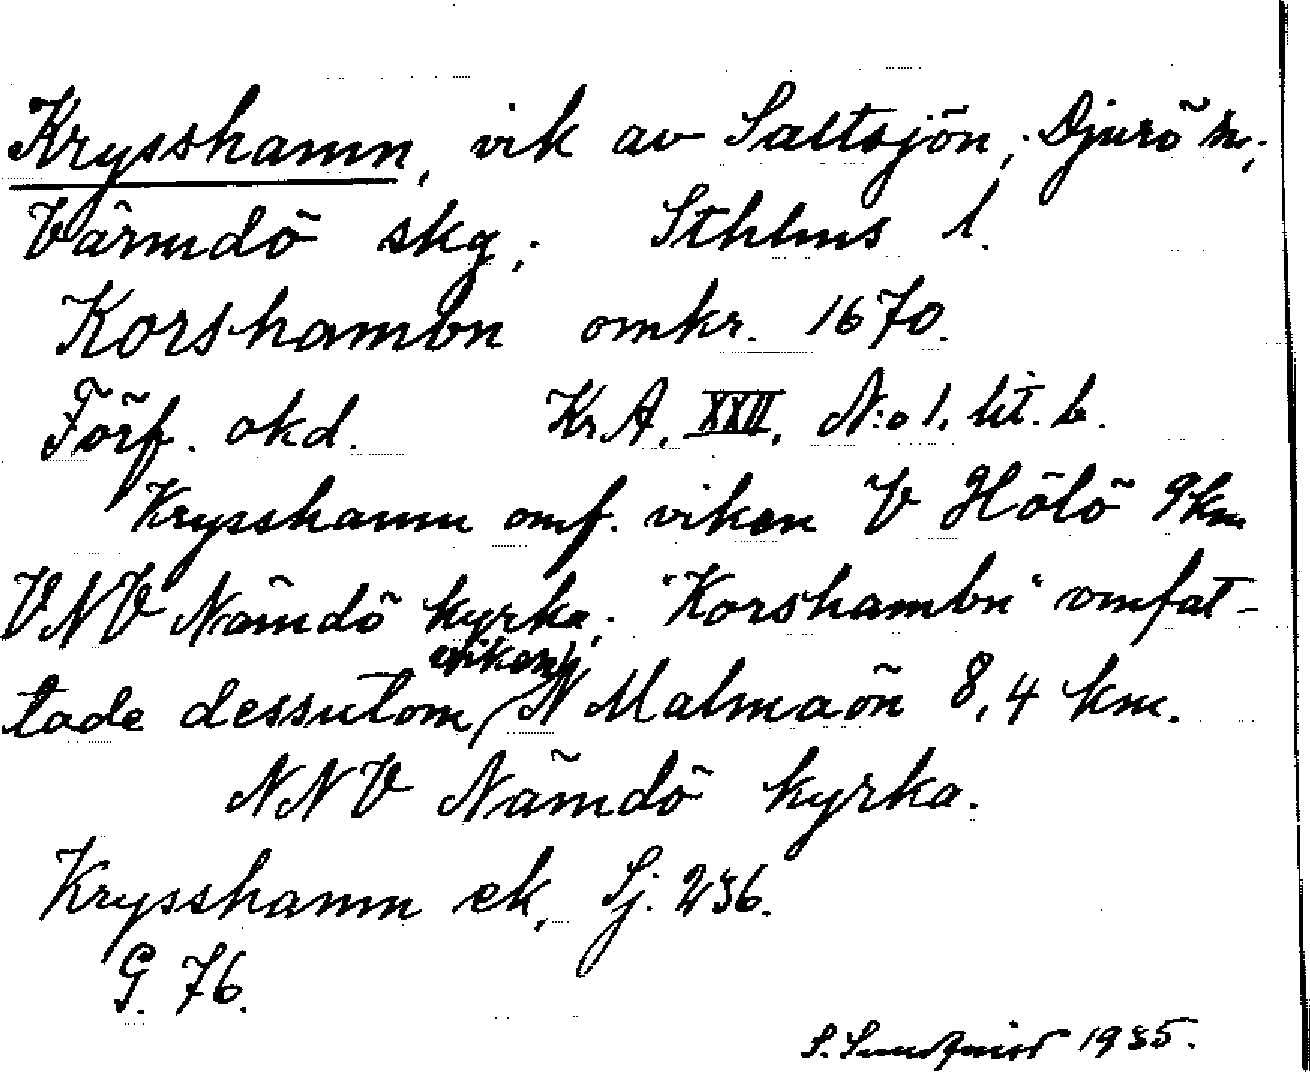 Krysshamn, vik av Saltsjön; Djurö sn;
Värmdö skg; Sthlms l.
Korshambn omkr. 1670.
Förf. okd. Kr A. XXII. N:o 1. lit. b.
Krysshamn omf. viken V Hölö 9 km
VNV Nämdö kyrka; "Korshambn" omfat-
tade dessutom viken N Malmaön 8,4 km.
NNV Nämdö kyrka.
Krysshamn ek, Sj. 236.
G. 76.
S. Sundqvist 1935.